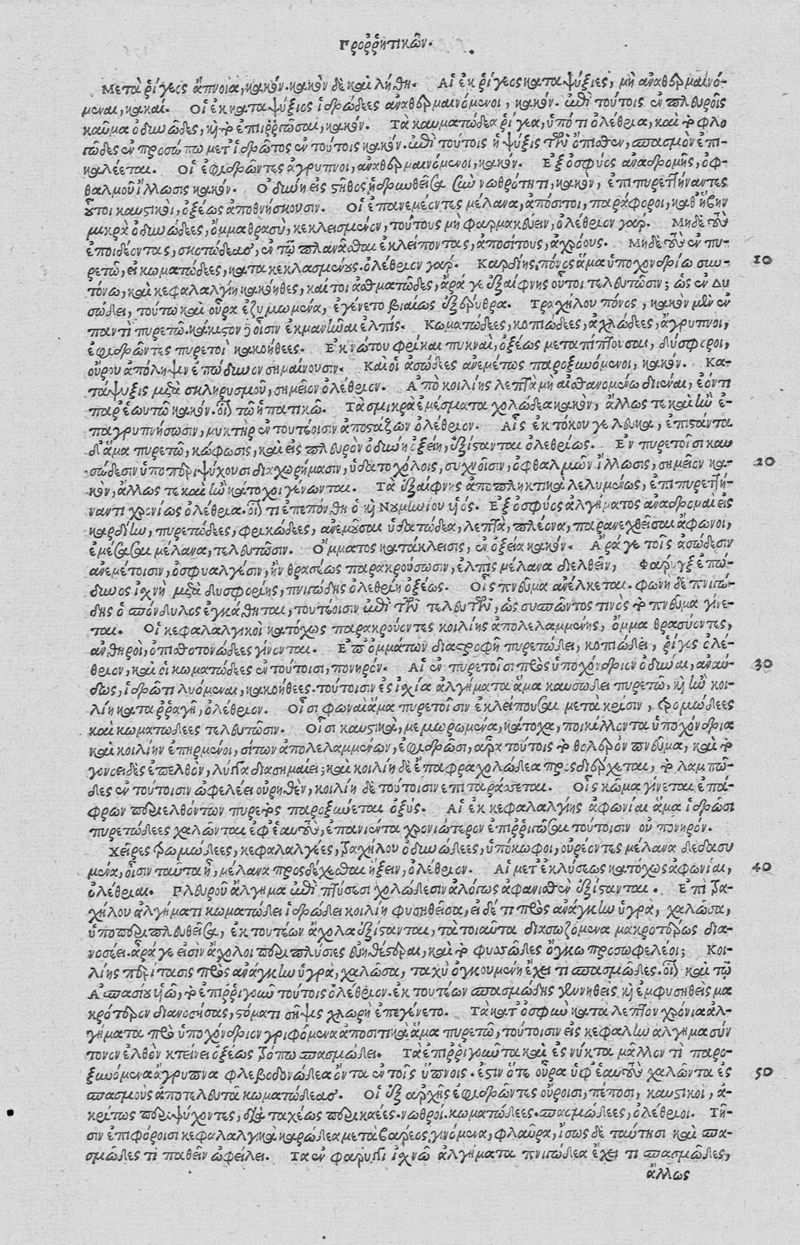 Προῤῥητικῶν.
Μετὰ ῥίγεος ἄπνοια, κακόν. κακὸν δὲ καὶ λήθη. Αἱ ἐκ ῥίγεος καταψύξιες, μὴ ἀναθερμαινό-
μεναι, κακαί. Οἱ ἐκ καταψύξιος ἱδρώδεες ἀναθερμαινόμενοι, κακόν. ἐπὶ τούτοις ἐν πλευροῖς
καῦμα ὀδυνῶδες, καὶ τὸ ἐπιῤῥιγῶσαι, κακόν. Τὰ καυματώδεα ῥίγεα, ὑπό τι ὀλέθρια, καὶ τὸ φλο
γῶδες ἐν προσώπῳ μετ' ἱδρῶτος ἐν τούτοις κακόν. ἐπὶ τούτοις ἡ ψύξις τῶν ὄπισθεν, σπασμὸν ἐπι-
καλέεται. Οἱ ἐφιδρῶντες ἄγρυπνοι, ἀναθερμαινόμενοι, κακόν. Ἐξ ὀσφύος ἀναδρομῆς, ὀφ-
θαλμοῦ ἴλλωσις κακόν. Ὀδύνη εἰς στῆθος ἱδρυνθεῖσα σὺν νωθρότητι, κακόν, ἐπιπυρετήναντες
οὗτοι καυστικοὶ, ὀξέως ἀποθνήσκουσιν. Οἱ ἐπανεμέοντες μέλανα, ἀπόσιτοι, παράφοροι, καθ' ἥβην
μικρὰ ὀδυνώδεες, ὄμμα θρασύ, κεκλεισμένον, τούτους μὴ φαρμακεύειν, ὀλέθριον γάρ. Μηδὲ τοὺς
ἐποιδέοντας, σκοτώδεας, ἐν τῷ πλανᾶσθαι ἐκλείποντας, ἀποσίτους, ἀχρόους. Μηδὲ τοὺς ἐν πυ-
ρετῷ, εἰ κωματώδεες, κατακεκλασμένους. ὀλέθριον γάρ. Καρδίης, πόνος ἅμα ὑποχονδρίῳ συν- 10
τόνῳ, καὶ κεφαλαλγίη κακόηθες, καί τοι ἀσθματῶδες, ἆρά γε ἐξαίφνης οὗτοι τελευτῶσιν; ὡς ἐν Δυ
σώδει, τούτῳ καὶ οὖρα ἐζυμωμένα, ἐγένετο βιαίως ἐξέρυθρα. Τραχήλου πόνος, κακὸν μὲν ἐν
παντὶ πυρετῷ. κάκιστον δ' οἷσιν ἐκμανῆναι ἐλπίς. Κωματώδεες, κοπιώδεες, ἀχλυώδεες, ἄγρυπνοι,
ἐφιδρῶντες πυρετοὶ κακοήθεες. Ἐκ νώτου φρῖκαι πυκναὶ, ὀξέως μεταπίπτουσαι, δύσφοροι,
οὔρου ἀπόληψιν ἐπώδυνον σημαίνουσιν. Καὶ οἱ ἀσώδεες ἀνεμέτως παροξυνόμενοι, κακόν. Κα-
τάψυξις μετὰ σκληρυσμοῦ, σημεῖον ὀλέθριον. Ἀπὸ κοιλίης λεπτὰ μὴ αἰσθανομένῳ διιέναι, ἐόντι
παρ' ἑωυτῷ κακόν. οἷον τῷ ἡπατικῷ. Τὰ σμικρὰ ἐμέσματα χολώδεα κακὸν, ἄλλως τε καὶ ἢν ἐ-
παγρυπνήσωσιν, μυκτὴρ ἐν τουτέοισιν ἀποστάζων ὀλέθριον. Αἷς ἐκ τόκου γε λευκὰ, ἐπιστάντα
δ' ἅμα πυρετῷ, κώφωσις, καὶ εἰς πλευρὸν ὀδύνη ὀξείη, ἐξίστανται ὀλεθρίως. Ἐν πυρετοῖσι καυ-
σώδεσιν ὑποπεριψύχουσι διαχωρήμασιν, ὑδατοχόλοις, συχνοῖσιν, ὀφθαλμῶν ἴλλωσις, σημεῖον κα- 20
κὸν, ἄλλως τε καὶ ἢν κάτοχοι γένωνται. Τὰ ἐξαίφνης ἀποπληκτικὰ λελυμένως, ἐπιπυρετή-
ναντι χρονίως ὀλέθρια. οἷόν τι ἐπεπόνθη ὁ καὶ Νουμηνίου υἱός. Ἐξ ὀσφύος ἀλγήματος ἀναδρομαὶ εἰς
καρδίην, πυρετώδεες, φρικώδεες, ἀνεμοῦσαι ὑδατώδεα, λεπτὰ, πλέονα, παρανεχθεῖσαι ἄφωνοι,
ἐμέσασαι μέλανα, τελευτῶσιν. Ὄμματος κατάκλεισις, ἐν ὀξείᾳ κακόν. Ἆρά γε τοῖς ἀσώδεσιν
ἀνεμέτοισιν, ὀσφυαλγέσιν, ἢν θρασέως παρακρούσωσιν, ἐλπὶς μέλανα διελθεῖν, Φάρυγξ ἐπώ-
δυνος ἰχνὴ μετὰ δυσφορίης, πνιγώδης ὀλεθρίη ὀξέως. Οἷς πνεῦμα ἀνέλκεται. φωνὴ δὲ πνιγώ-
δης ὁ σπόνδυλος ἐγκάθηται, τουτέοισιν ἐπὶ τῶν τελευτῶν, ὡς συσπῶντός τινος τὸ πνεῦμα γίνε-
ται. Οἱ κεφαλαλγικοὶ κατόχως παρακρούοντες κοιλίης ἀπολελαμμένης, ὄμμα θρασύνοντες,
ἀνθηροὶ, ὀπισθοτονώδεες γίνονται. Ἐπ' ὀμμάτων διαστροφῇ πυρετώδει, κοπιώδει, ῥῖγος ὀλέ-
θριον, καὶ οἱ κωματώδεες ἐν τούτοισι, πονηρόν. Αἱ ἐν πυρετοῖσι πρὸς ὑποχόνδριον ὀδύναι, ἀναύ- 30
δως, ἱδρῶτι λυόμεναι, κακοήθεες. τούτοισιν ἐς ἰσχία ἀλγήματα ἅμα καυσώδει πυρετῷ, καὶ ἢν κοι-
λίη καταῤῥαγῇ, ὀλέθριον. Οἷσι φωναὶ ἅμα πυρετοῖσιν ἐκλείπουσαι μετὰ κρίσιν, τρομώδεες
καὶ κωματώδεες τελευτῶσιν. Οἷσι καυστικὰ, μεμωρωμένα, κάτοχα, ποικίλλοντα ὑποχόνδρια
καὶ κοιλίην ἐπηρμένοι, σίτων ἀπολελαμμένων, ἐφιδρῶσι, ἆρα τούτοις τὸ θολερὸν πνεῦμα, καὶ τὸ
γονοειδὲς ἐπελθὸν, λύγγα διασημαίει; καὶ κοιλίη δὲ ἔπαφρα χολώδεα προσδιέρχεται, τὸ λαμπῶ-
δες ἐν τούτοισιν ὠφελέει οὐρηθὲν, κοιλίη δὲ τούτοισιν ἐπιταράσσεται. Οἷς κῶμα γίνεται ἐπά-
φρων περιελθόντων πυρετὸς παροξύνεται ὀξύς. Αἱ ἐκ κεφαλαλγίης ἀφωνίαι ἅμα ἱδρῶσι
πυρετώδεες χαλῶνται ἐφ' ἑαυτοὺς, ἐπανιόντα χρονιώτερον ἐπιῤῥιγῶσαι τούτοισιν οὐ πονηρόν.
Χεῖρες τρομώδεες, κεφαλαλγέες, τραχήλου ὀδυνώδεες, ὑπόκωφοι, οὐρέοντες μέλανα δεδασυ
μένα, οἷσιν ταῦτα ἢ, μέλανα προσδέχεσθαι ἥξειν, ὀλέθριον. Αἱ μετ' ἐκλύσεως κατόχως ἀφωνίαι, 40
ὀλέθριαι. Πλευροῦ ἄλγημα ἐπὶ πτύσεσι χολώδεσιν ἀλόγως ἀφανισθὲν ἐξίστανται. Ἐπὶ τρα-
χήλου ἀλγήματι κωματώδει ἱδρώδει κοιλίη φυσηθεῖσα, εἰ δέ τι πρὸς ἀνάγκην ὑγρὰ, χαλῶσα,
ὑποπεριπλευθεῖσα, ἐκ τουτέων ἄχολα ἐξίστανται, τὰ τοιαῦτα διασωζόμενα μακροτέρως δια-
νοσέει. ἆρά γε εἰσὶν ἄχολοι περιπλύσιες εὐηθέστεραι, καὶ τὸ φυσῶδες ὄγκῳ προσωφελέοι; Κοι-
λίης περίτασις πρὸς ἀνάγκην ὑγρὰ, χαλῶσα, ταχὺ ὀγκουμένη ἔχει τι σπασμῶδες. οἷον καὶ τῷ
Ἀσπασίου υἱῷ, τὸ ἐπιῤῥιγοῦν τούτοις ὀλέθριον. ἐκ τουτέων σπασμώδης γεννηθεὶς καὶ ἐμφυσηθεὶς μα
κρότερον διανοσήσας, στόματι σῆψις χλωρὴ ἐπεγένετο. Τὰ κατ' ὀσφὺν κατὰ λεπτὸν χρόνια ἀλ-
γήματα πρὸς ὑποχόνδριον γριφόμενα ἀποσιτικὰ ἅμα πυρετῷ, τούτοισιν εἰς κεφαλὴν ἄλγημα σύν
τονον ἐλθὸν κτείνει ὀξέως τρόπῳ σπασμώδει. Τὰ ἐπιῤῥιγοῦντα καὶ ἐς νύκτα μᾶλλόν τι παρο-
ξυνόμενα ἄγρυπνα φλεδονώδεα ὄντα ἐν τοῖς ὕπνοις. ἔστιν ὅτε οὖρα ὑφ' ἑαυτοὺς χαλῶντα ἐς 50
σπασμοὺς ἀποτελευτᾷ κωματώδεας. Οἱ ἐξ ἀρχῆς ἐφιδρῶντες οὔροισι, πέποσι, καυστικοὶ, ἀ-
κρίτως περιψύχοντες, διὰ ταχέως περικαέες. νωθροὶ. κωματώδεες. σπασμώδεες, ὀλέθριοι. Τῇ-
σιν ἐπιφόροισι κεφαλαλγικὰ καρώδεα μετὰ βαρέος γινόμενα, φλαῦρα, ἴσως δὲ ταύτῃσι καὶ σπα-
σμῶδές τι παθεῖν ὠφείλει. Τὰ ἐν φάρυγγι ἰσχνῷ ἀλγήματα πνιγώδεα ἔχει τι σπασμῶδες,
ἄλλως